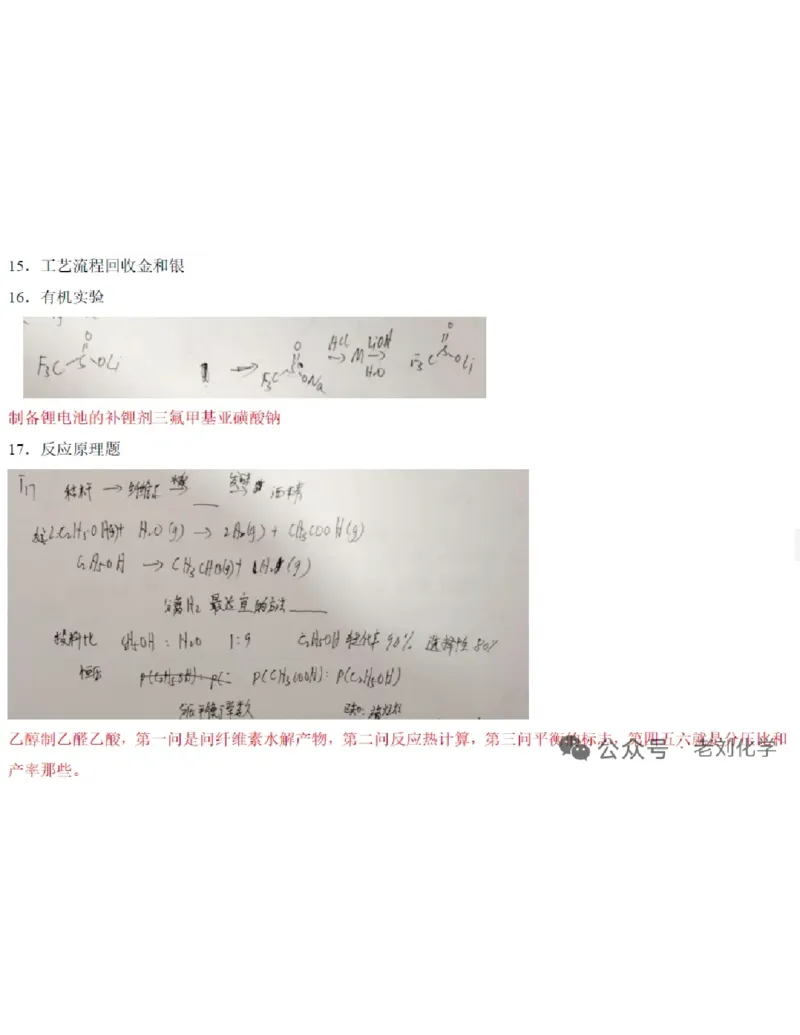 15．工艺流程回收金和银
16．有机实验
F₃C S O OLi → F₃C S O ONa HCl → M LiOH → H₂O F₃C S O OLi
制备锂电池的补锂剂三氟甲基亚磺酸钠
17．反应原理题
秸秆 → 纤维素 → → 酒精
C₂H₅OH(g)+ H₂O(g) → 2H₂(g) + CH₃COOH(g)
C₂H₅OH → CH₃CHO(g)+ H₂(g)
分离H₂ 最适宜的方法____
投料比 C₂H₅OH : H₂O 1:9 C₂H₅OH 转化率 90% 选择性 80%
恒压 p(CH₃COOH) : p(C₂H₅OH)
分压平衡常数
乙醇制乙醛乙酸，第一问是问纤维素水解产物，第二问反应热计算，第三问平衡的标志，第四五六就是分压比和
产率那些。
公众号 · 老刘化学